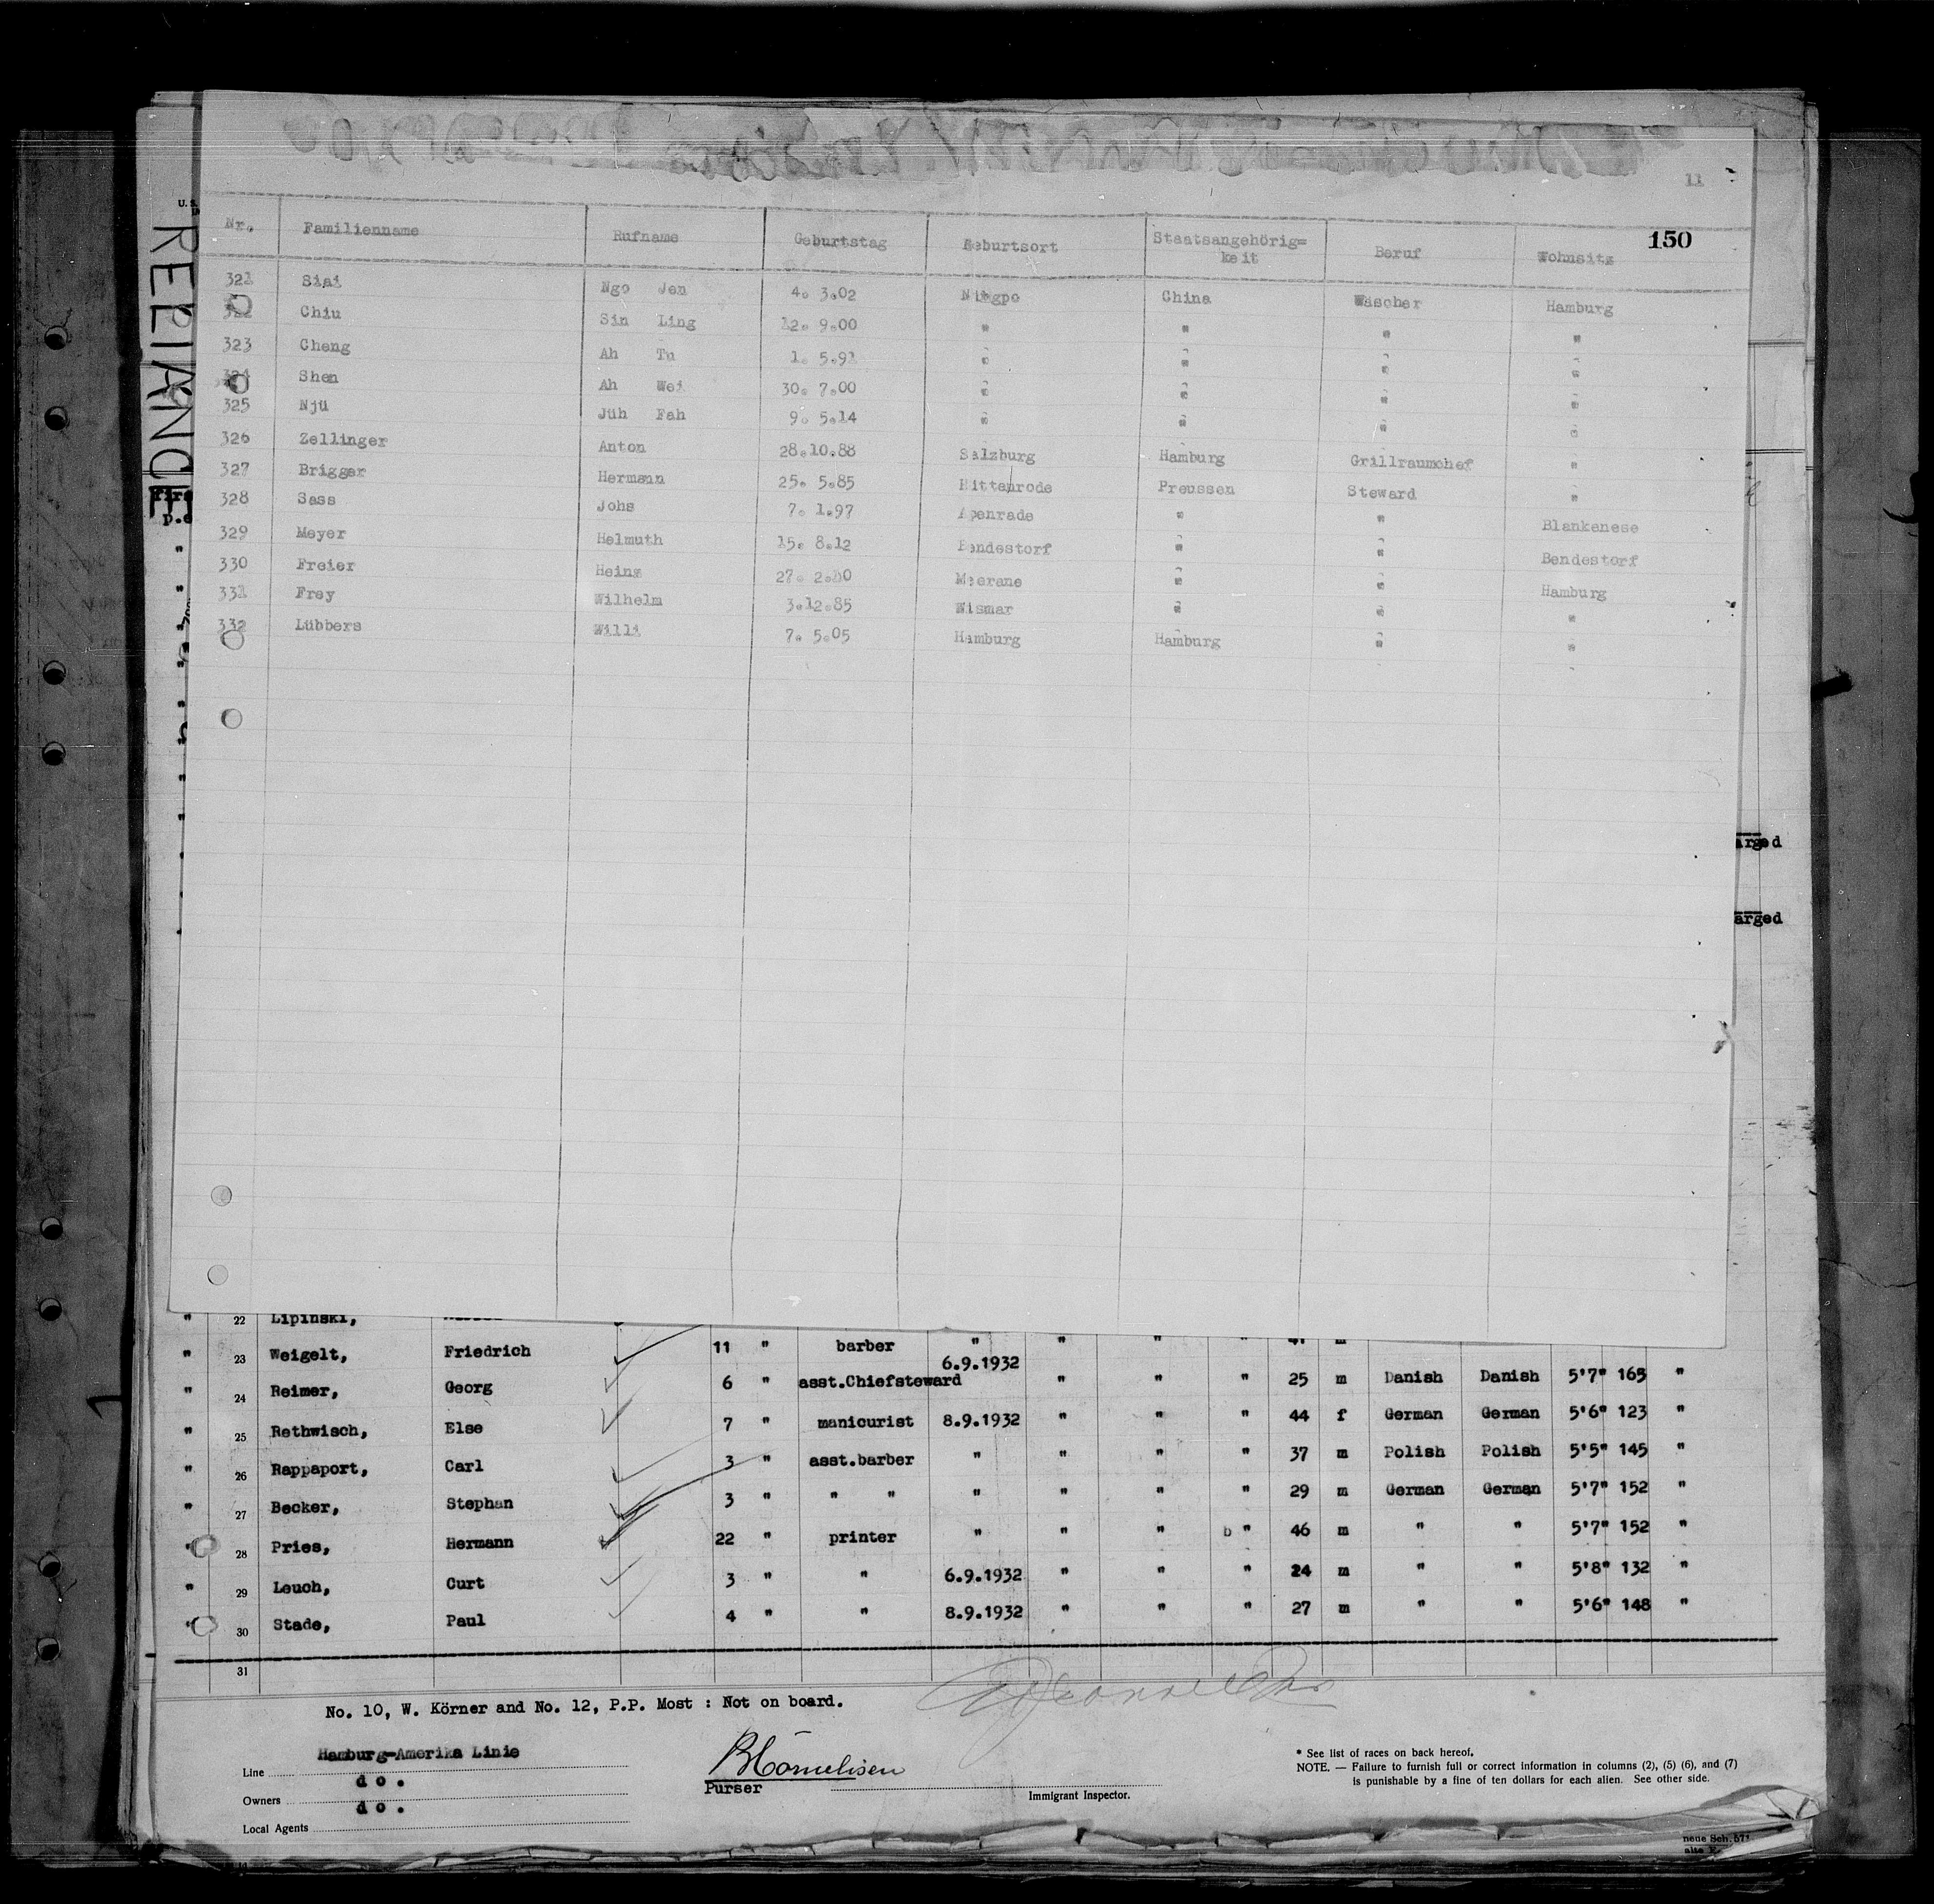 11
150
RELIANCE
Nr. Familienname Rufname Geburtstag Geburtsort Staatsangehörig= keit Beruf Wohnsitz
321 Siai Ngo Jen 4. 3.02 Ningpo China Wäscher Hamburg
322 Chiu Sin Ling 12. 9.00 " " " "
323 Cheng Ah Tu 1. 5.91 " " " "
324 Shen Ah Wei 30. 7.00 " " " "
325 Njü Jüh Fah 9. 5.14 " " " "
326 Zellinger Anton 28.10.88 Salzburg Hamburg Grillraumchef "
327 Brigger Hermann 25. 5.85 Hittenrode Preussen Steward "
328 Sass Johs 7. 1.97 Apenrade " " Blankenese
329 Meyer Helmuth 15. 8.12 Bendestorf " " Bendestorf
330 Freier Heinz 27. 2. Meerane " " Hamburg
331 Frey Wilhelm 3.12.85 Wismar " " "
332 Lübbers Willi 7. 5.05 Hamburg Hamburg " "
arged
arged
" 22 Lipinski,
" 23 Weigelt, Friedrich 11 " barber " " " "
" 24 Reimer, Georg 6 " asst.Chiefsteward 6.9.1932 " " " 25 m Danish Danish 5'7" 165 "
" 25 Rethwisch, Else 7 " manicurist 8.9.1932 " " " 44 f German German 5'6" 123 "
" 26 Rappaport, Carl 3 " asst.barber " " " " 37 m Polish Polish 5'5" 145 "
" 27 Becker, Stephan 3 " " " " " " " 29 m German German 5'7" 152 "
" 28 Pries, Hermann 22 " printer " " " b " 46 m " " 5'7" 152 "
" 29 Leuch, Curt 3 " " 6.9.1932 " " " 24 m " " 5'8" 132 "
" 30 Stade, Paul 4 " " 8.9.1932 " " " 27 m " " 5'6" 148 "
31
No. 10, W. Körner and No. 12, P.P. Most : Not on board.
Line Hamburg-Amerika Linie
Owners do.
Local Agents do.
BCornelisen
Purser
Immigrant Inspector.
* See list of races on back hereof.
NOTE. — Failure to furnish full or correct information in columns (2), (5) (6), and (7)
is punishable by a fine of ten dollars for each alien. See other side.
neue Sch. 571